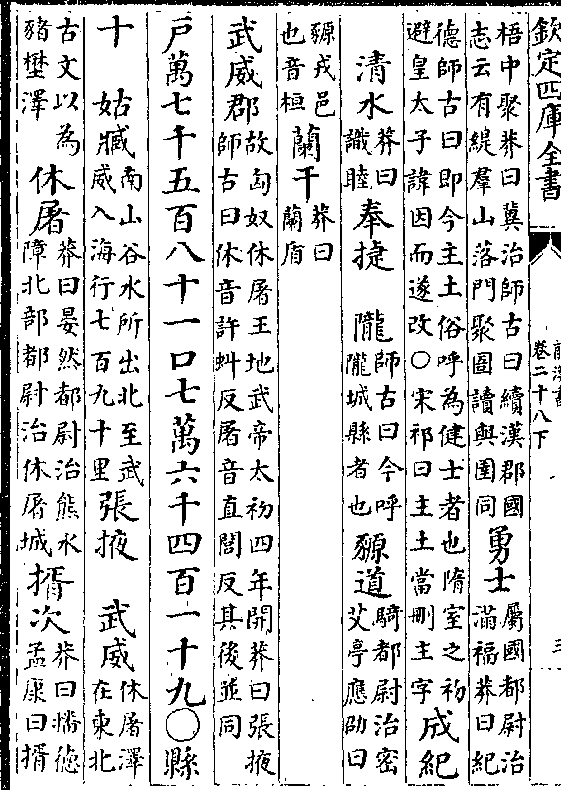 欽定四庫全書
卷二十八下
梧中聚莽曰冀治師古曰續漢郡國志云有緹羣山落門聚圄讀與圉同勇士屬國都尉治滿福莽曰紀
德師古曰即今主土俗呼為健士者也隋室之初避皇太子諱因而遂改○宋祁曰主土當刪主字成紀
清水莽曰識睦奉捷 隴師古曰今呼隴城縣者也豲道騎都尉治密艾亭應劭曰
豲戎邑也音桓蘭干莽曰蘭盾
武威郡故匈奴休屠王地武帝太初四年開莽曰張掖師古曰休音許虯反屠音直閭反其後並同
戸萬七千五百八十一口七萬六千四百一十九○縣
十 姑臧南山谷水所出北至武威入海行七百九十里張掖 武威休屠澤在東北
古文以為豬壄澤 休屠莽曰晏然都尉治熊水障北部都尉治休屠城揟次莽曰播德孟康曰揟